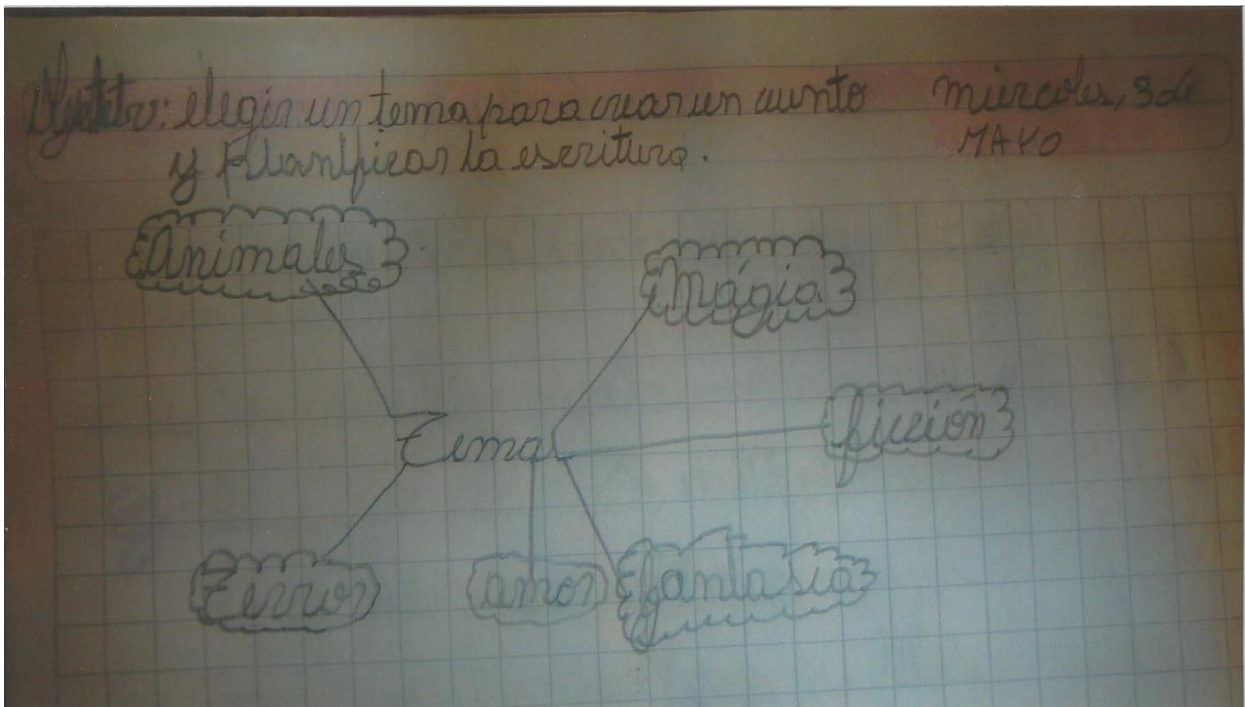 Objetivo: elegir un tema para crear un cuento
y planificar la escritura.
miercoles, 3 de
MAYO
Animales
Mágia
Tema
ficción
Terror
amor
fantasia